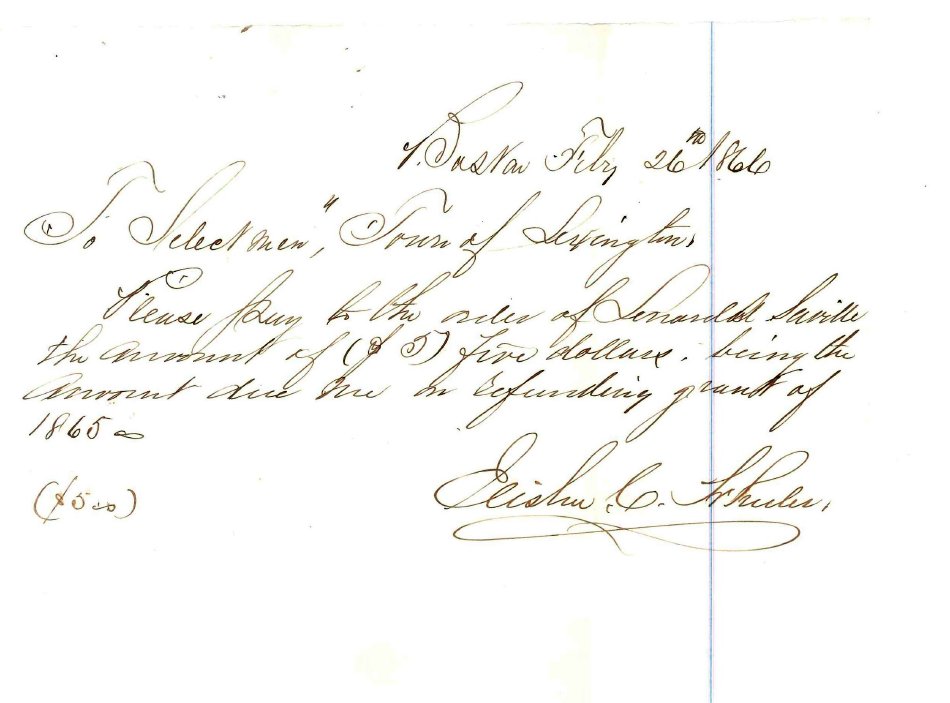 Boston Feby 26th 1866
To "Selectmen", Town of Lexington,
Please pay to the order of Leonard Saville
the amount of ($5) five dollars. being the
amount due me on refunding grant of
1865
($5.00) Elisha C.